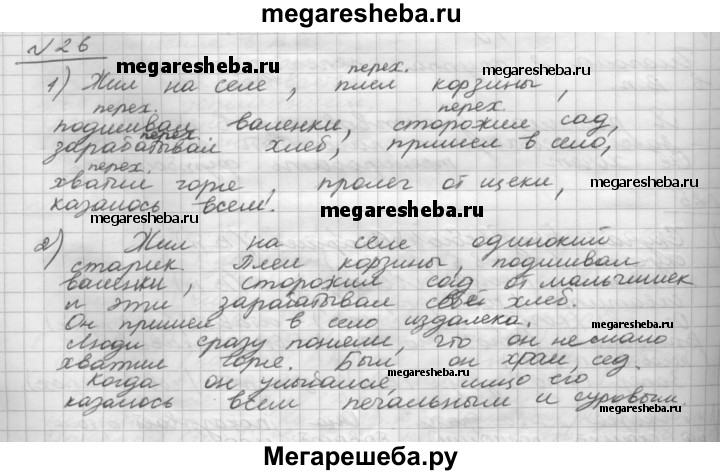 megaresheba.ru
№26
megaresheba.ru
перех.
1) Жил на селе, плел корзины,
перех. перех.
подшивал валенки, сторожил сад,
перех.
зарабатывал хлеб, пришел в село,
перех.
хватил горе, пролег от щеки,
megaresheba.ru
казалось всем.
megaresheba.ru
megaresheba.ru
2) Жил на селе одинокий
старик. Плел корзины, подшивал
валенки, сторожил сад от мальчишек
и эти зарабатывал свой хлеб.
Он пришел в село издалека.
megaresheba.ru
Люди сразу поняли, что он немало
хватил горе. Был он хром, сед.
megaresheba.ru
Когда он улыбался, лицо его
казалось всем печальным и суровым.
megaresheba.ru
megaresheba.ru
Мегарешеба.ру